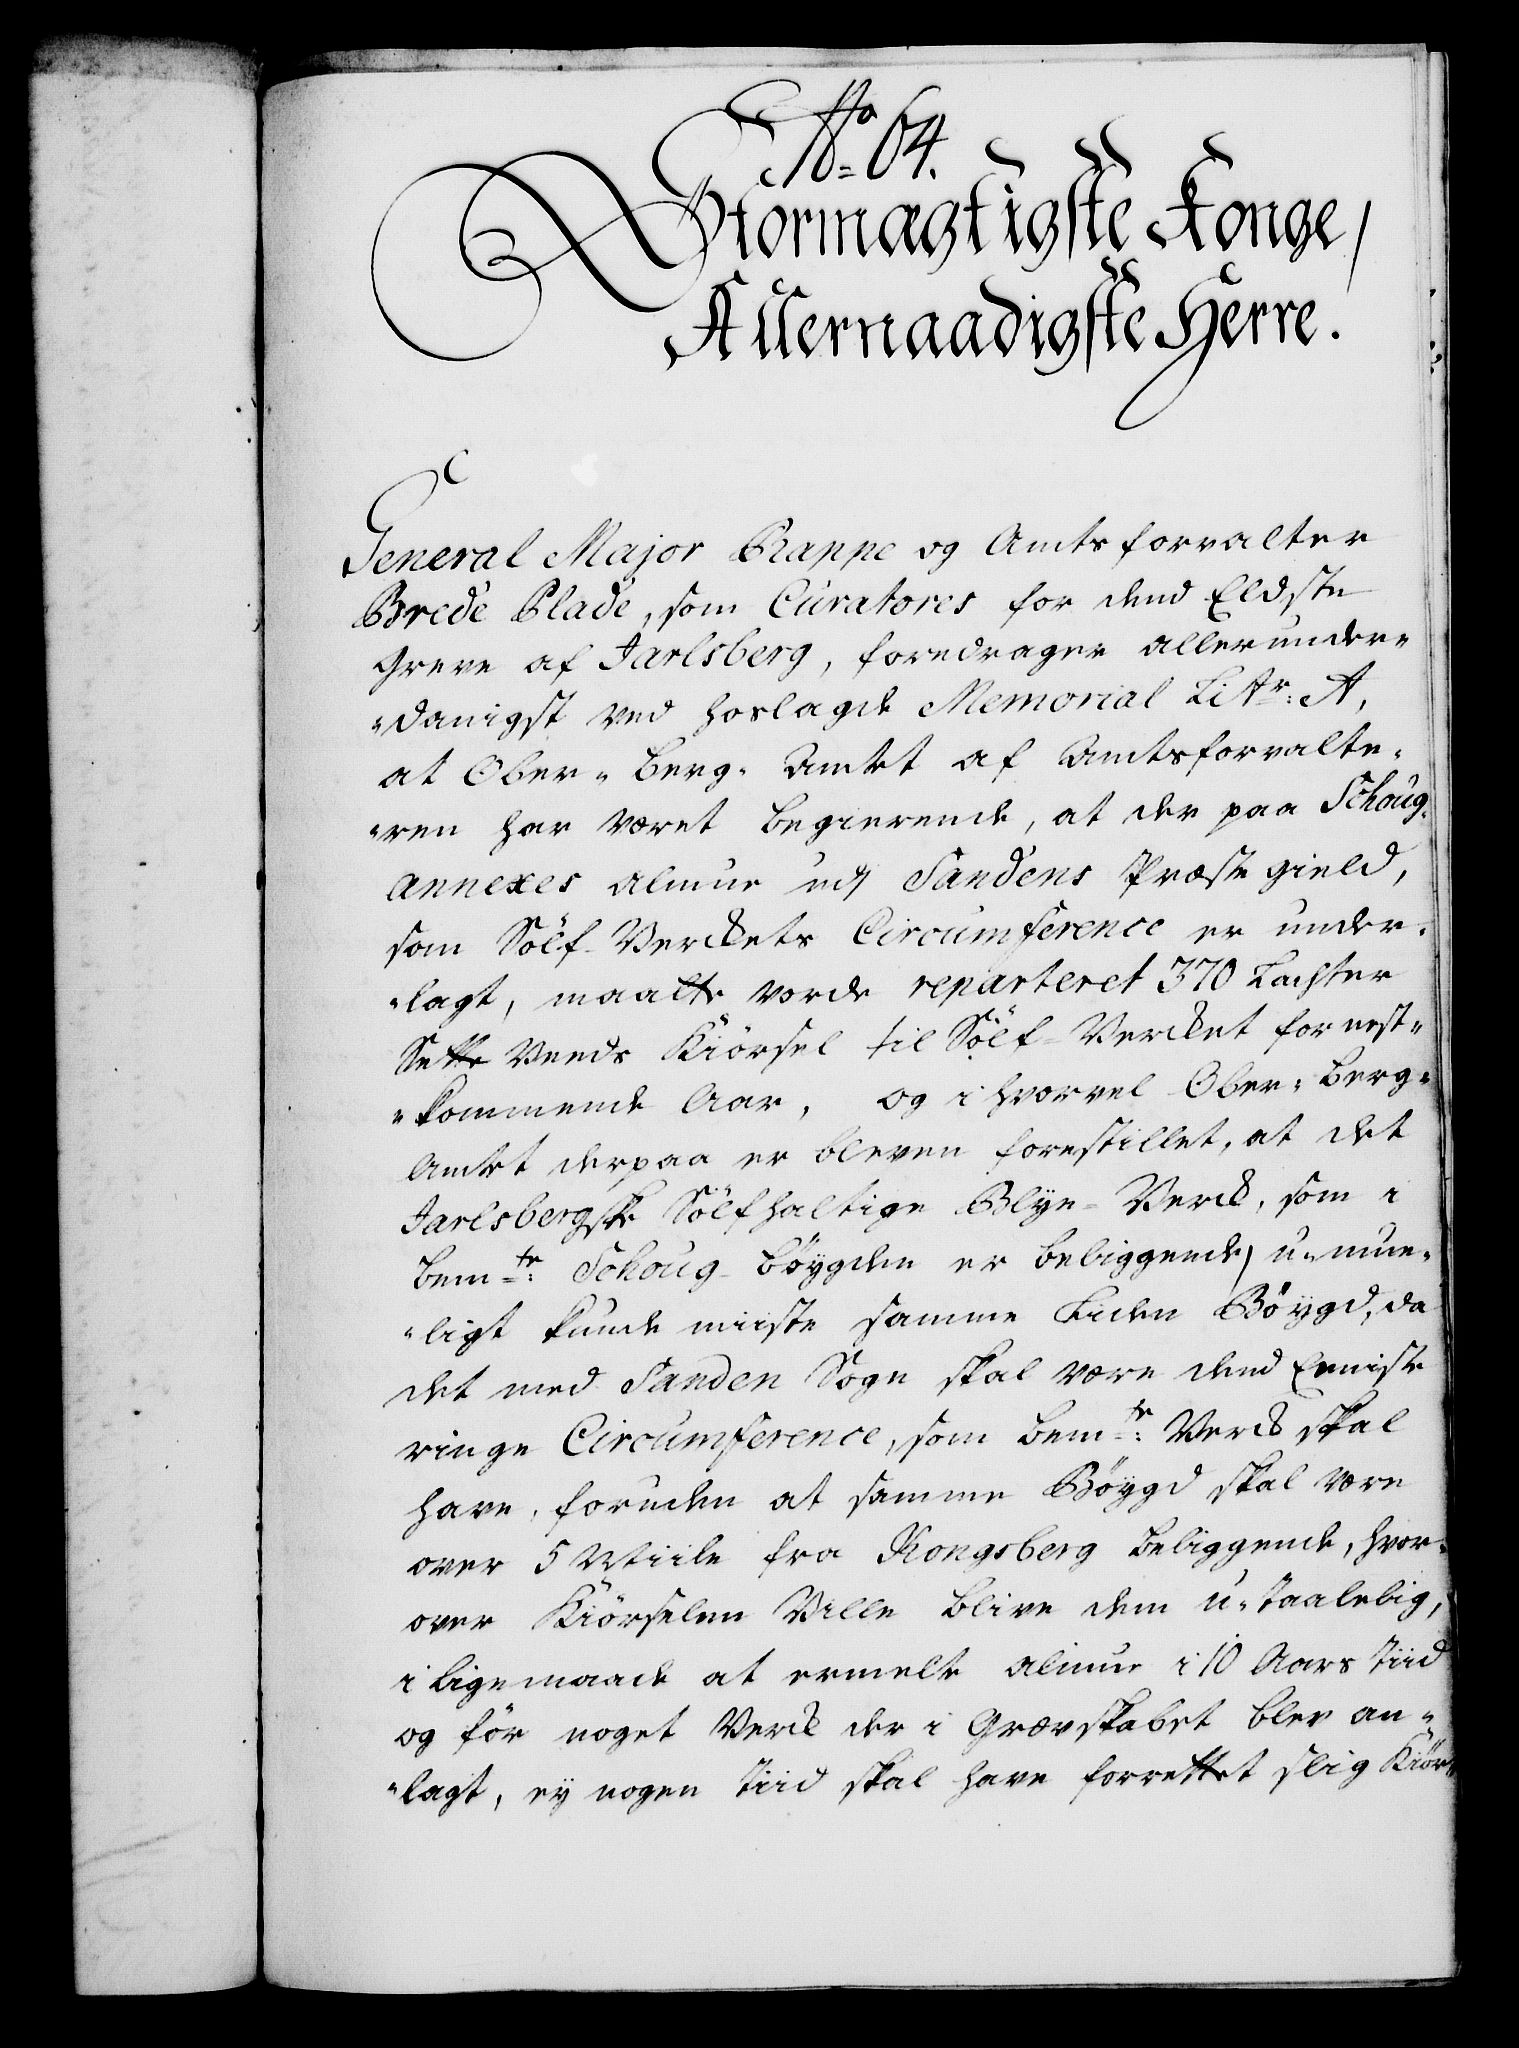 No 64.
Stormægtigste Konge,
Allernaadigste Herre.
General Major Rappe og Amtsforvalter
Brede Plade, som Curatores for dend Eldste
Greve af Jarlsberg, foredrager allerunder-
-danigst ved hoslagde Memorial Littr: A,
at Ober-Berg-Amtet af Amtsforvalte-
-ren har været begierende, at der paa Schoug-
annexes almue udj Sandens Præstegield,
som Sölf-Verckets Circumference er under-
-lagt, maatte vorde reparteret 370 Lachter
Sette Veeds Kiörsel til Sölf-Vercket for nest-
-kommende Aar, og i hvorvel Ober-Berg-
Amtet derpaa er bleven forestillet, at det
Jarlsbergske Sölfhaltige Blye-Verck, som i
bemte: Schoug-Böygden er beliggende, u-mue-
-ligt kunde miiste samme Liden Böygd, da
det med Sanden Sogn skal være dend Eeniste
ringe Circumference, som bemte: Verck skal
have, foruden at samme Böygd skal være
over 5 Miile fra Kongsberg beliggende, hvor-
over Kiörselen Ville blive dem u-taalelig,
i ligemaade at ermelte almue i 10 Aars Tiid
og för noget Verck der i Grævskabet blev an-
-lagt, ey nogen Tiid skal have forrettet slig Kiör-